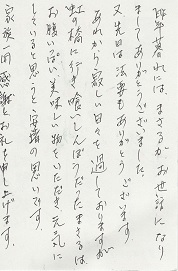 昨年暮れには、まさるがお世話になり
ましてありがとうございました。
又先日は法要もありがとうございます
あれから寂しい日々を過しておりますが
虹の橋に行き喰いしんぼうだったまさるは
お腹いっぱい美味しい物をいただき元気に
していると思うと、安堵の思いです。
家族一同感謝とお礼を申し上げます。